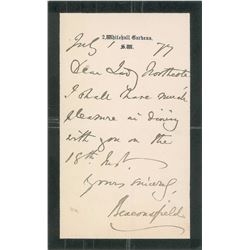 2, Whitehall Gardens,
S.W.
July 1 77
Dear Lady Northcote
I shall have much
pleasure in dining
with you on the
18th Inst.
Yours sincerely,
Beaconsfield